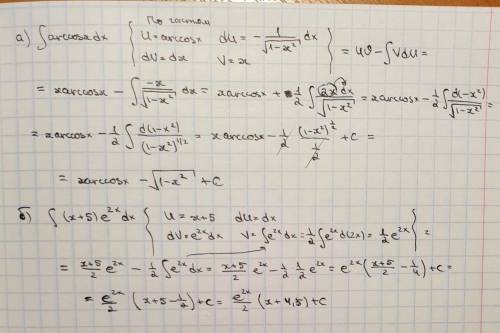 По частям
а) ∫ arccosx dx { U = arccosx   dU = -1/√(1-x²) dx   dV = dx   V = x } = UV - ∫VdU =
= xarccosx - ∫ -x/√(1-x²) dx = xarccosx + 1/2 ∫ (2x)dx/√(1-x²) = xarccosx - 1/2 ∫ d(-x²)/√(1-x²) =
= xarccosx - 1/2 ∫ d(1-x²)/(1-x²)^1/2 = xarccosx - 1/2 (1-x²)^1/2/(1/2) + C =
= xarccosx - √(1-x²) + C
б) ∫ (x+5)e^2x dx { U = x+5   dU = dx   dV = e^2x dx   V = ∫e^2x dx = 1/2 ∫e^2x d(2x) = 1/2 e^2x } =
= (x+5)/2 e^2x - 1/2 ∫e^2x dx = (x+5)/2 e^2x - 1/2 1/2 e^2x = e^2x ((x+5)/2 - 1/4) + C =
= e^2x/2 (x+5-1/2) + C = e^2x/2 (x+4,5) + C